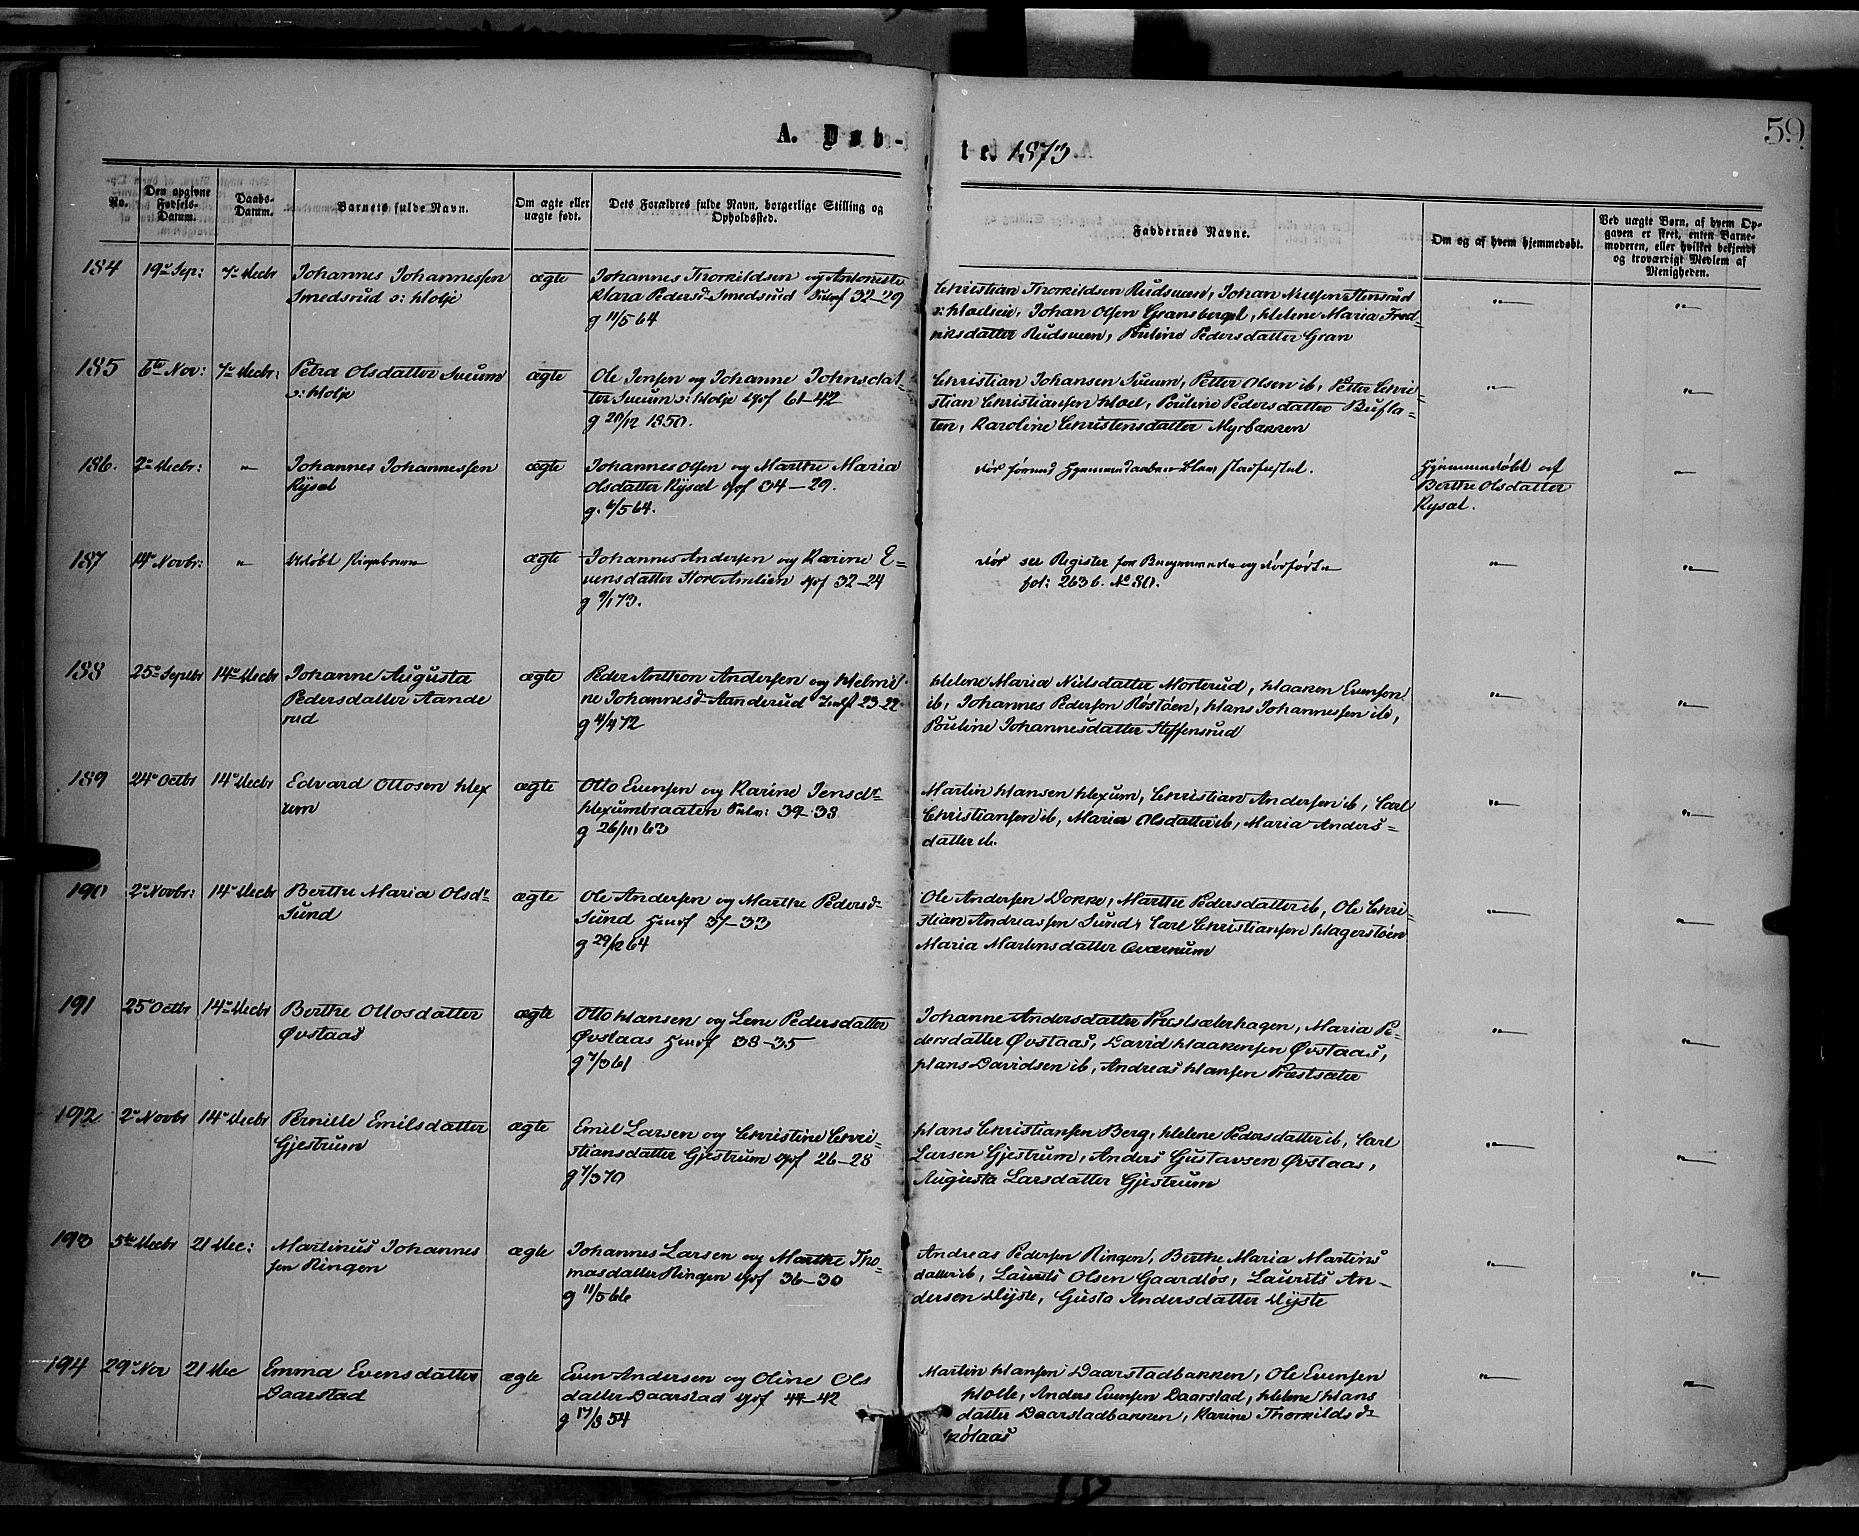 A. Døb-
te. 1873
59
No.
Den opgivne Fødsels-Datum.
Daabs-Datum.
Barnets fulde Navn.
Om ægte eller uægte født.
Dets Forældres fulde Navn, borgerlige Stilling og Opholdssted.
Faddernes Navne.
Om og af hvem hjemmedøbt.
Ved uægte Børn, af hvem Opgaven er skeet, enten Barnemoderen, eller hvilket bekjendt og troværdigt Medlem af Menigheden.
184 19de Sep: 7de Decbr Johannes Johannessen ægte Johannes Thorkildsen og Antonette
Smedsrud o: Holje Klara Pedersd. Smedsrud 32-29
g 11/5 64
Christian Thorkildsen Rudsveen, Johan Nielsen Stensrud
Johan Olsen Gransberget, Helene Maria Fred-
riksdatter Rudsveen, Pauline Pedersdatter Gran
185 6te Nov: 7de Decbr: Petra Olsdatter Sveum ægte Ole Jensen og Johanne Johnsdat-
o: Holje ter Sveum o: Holje Gbf 61-42
g 20/12 1850.
Christian Johansen Sveum, Petter Olsen ib, Petter Chri-
stian Christiansen Hoel, Pauline Pedersdatter Bufla-
ten, Karoline Christensdatter Myrbakken
186. 2de Decbr: " Johannes Johannessen ægte Johannes Olsen og Marthe Maria
Rysæt Olsdatter Rysæt Gbf 34-29.
g. 6/5 64.
død førend Hjemmedaaben blev stadfæstet.
Hjemmedøbt af
Berthe Olsdatter
Rysæt.
187 14de Novbr: " Udøbt Pigebarn ægte Johannes Andersen og Karine E-
vensdatter Store Amlien Gbf 32-24
g 9/1 73.
død see Register for Begravede og Dødfødte
fol: 263 b. No 80.
188 25de Septbr 14de Decbr Johanne Augusta ægte Peder Anthon Andersen og Helmi-
Pedersdatter Aande ne Johannesd. Aanderud Indst 23-22
rud g 4/4 72
Helene Maria Nilsdatter Morterud, Haaken Evensen
ib, Johannes Pedersen Røstøen, Hans Johannessen ib,
Pauline Johannesdatter Steffensrud
189 24de Octbr 14de Decbr Edvard Ottosen Hex ægte Otto Evensen og Karine Jensdr
um Hexumbraaten 39-38
g 26/10 63
Martin Hansen Hexum, Christian Andersen ib, Carl
Christiansen ib, Maria Olsdatter ib, Maria Anders-
datter ib.
190 2de Novbr: 14de Decbr Berthe Maria Olsdr ægte Ole Andersen og Marthe Pedersd
Sund Sund Husmf 37-33
g 29/12 64
Ole Andersen Dokke, Marthe Pedersdatter ib, Ole Chri-
stian Andreassen Sund, Carl Christiansen Hagerstøen
Maria Martinsdatter Qværnum
191 25de Octbr 14de Decbr Berthe Ottosdatter ægte Otto Hansen og Lene Pedersdatter
Øvstaas Øvstaas Husmf 38-35
g 7/3 61
Johanne Andersdatter Præstsæterhagen, Maria Pe-
dersdatter Øvstaas, David Haakensen Øvstaas,
Hans Davidsen ib, Andreas Hansen Præstsæter
192 2de Novbr 14de Decbr Pernille Emilsdatter ægte Emil Larsen og Christine Chri-
Gjestrum stiansdatter Gjestrum Gbf 26-28
g 7/3 70
Hans Christiansen Berg, Helene Pedersdatter ib, Carl
Larsen Gjestrum, Anders Gustavsen Øvstaas,
Augusta Larsdatter Gjestrum
193 5te Decbr 21 Dec: Martinus Johannes ægte Johannes Larsen og Marthe Tho-
sen Ringen masdatter Ringen Gbf 36-30
g 11/5 66
Andreas Pedersen Ringen, Berthe Maria Martins
datter ib, Laurits Olsen Gaardløs, Laurits An-
dersen Dyste, Gusta Andersdatter Dyste
194 29de Nov 21 Dec Emma Evensdatter ægte Even Andersen og Oline Ols
Daarstad datter Daarstad Gbf 44-42
g 17/3 54
Martin Hansen Daarstadbakken, Ole Evensen
Holte, Anders Evensen Daarstad, Helene Hans
datter Daarstadbakken, Karine Thorkildsd